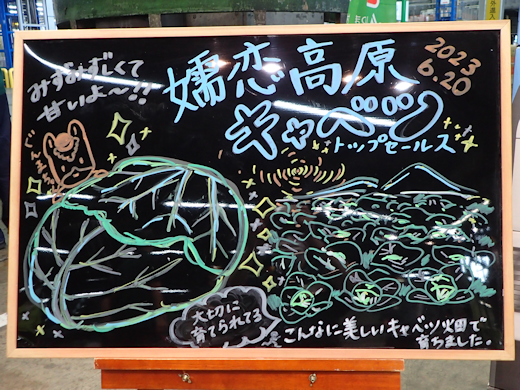 みずみずしくて
甘いよ〜!!
嬬恋高原
キャベツ
トップセールス
2023
6.20
大切に
育てられてる
こんなに美しいキャベツ畑で
育ちました。